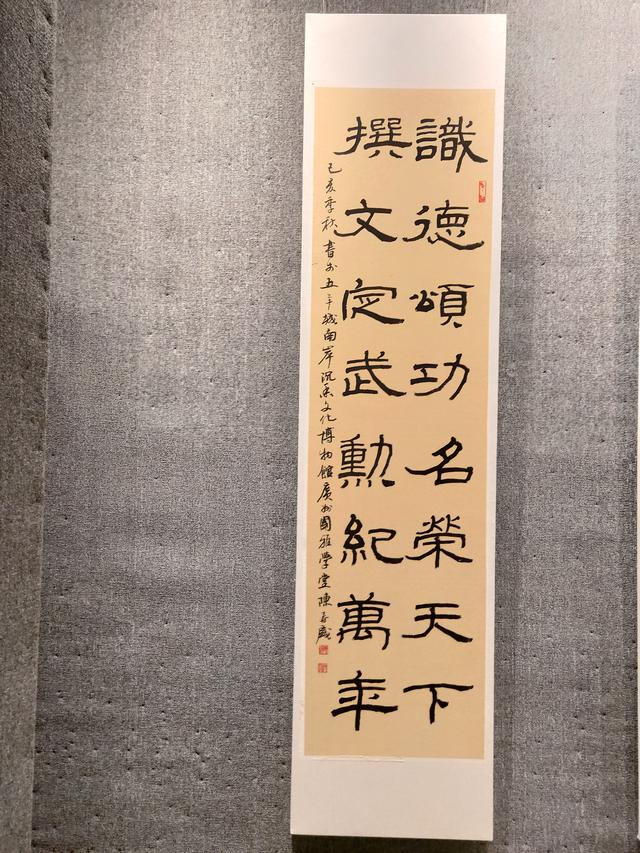 識德頌功名榮天下
撰文定武勳紀萬年
己亥季秋書於五羊城南岸沉香文化博物館廣州國雅學堂陳春盛